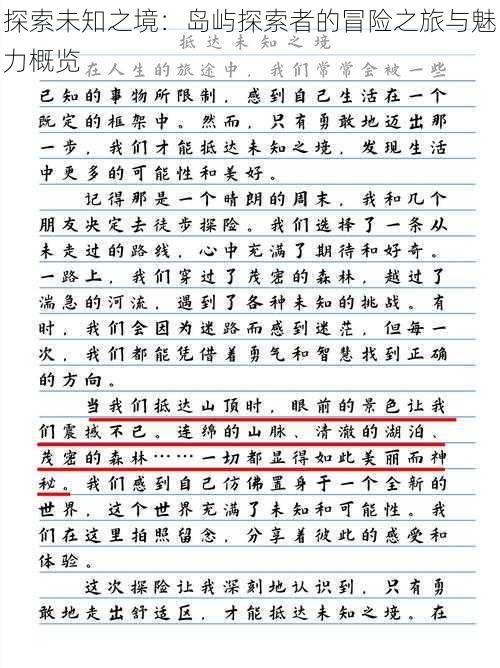 探索未知之境：岛屿探索者的冒险之旅与魅
力概览
抵达未知之境
在人生的旅途中，我们常常会被一些
已知的事物所限制，感到自己生活在一个
既定的框架中。然而，只有勇敢地迈出那
一步，我们才能抵达未知之境，发现生活
中更多的可能性和美好。
记得那是一个晴朗的周末，我和几个
朋友决定去徒步探险。我们选择了一条从
未走过的路线，心中充满了期待和好奇。
一路上，我们穿过了茂密的森林，越过了
湍急的河流，遇到了各种未知的挑战。有
时，我们会因为迷路而感到迷茫，但每一
次，我们都能凭借着勇气和智慧找到正确
的方向。
当我们抵达山顶时，眼前的景色让我
们震撼不已。连绵的山脉、清澈的湖泊、
茂密的森林……一切都显得如此美丽而神
秘。我们感到自己仿佛置身于一个全新的
世界，这个世界充满了未知和可能性。我
们在这里拍照留念，分享着彼此的感受和
体验。
这次探险让我深刻地认识到，只有勇
敢地走出舒适区，才能抵达未知之境。在